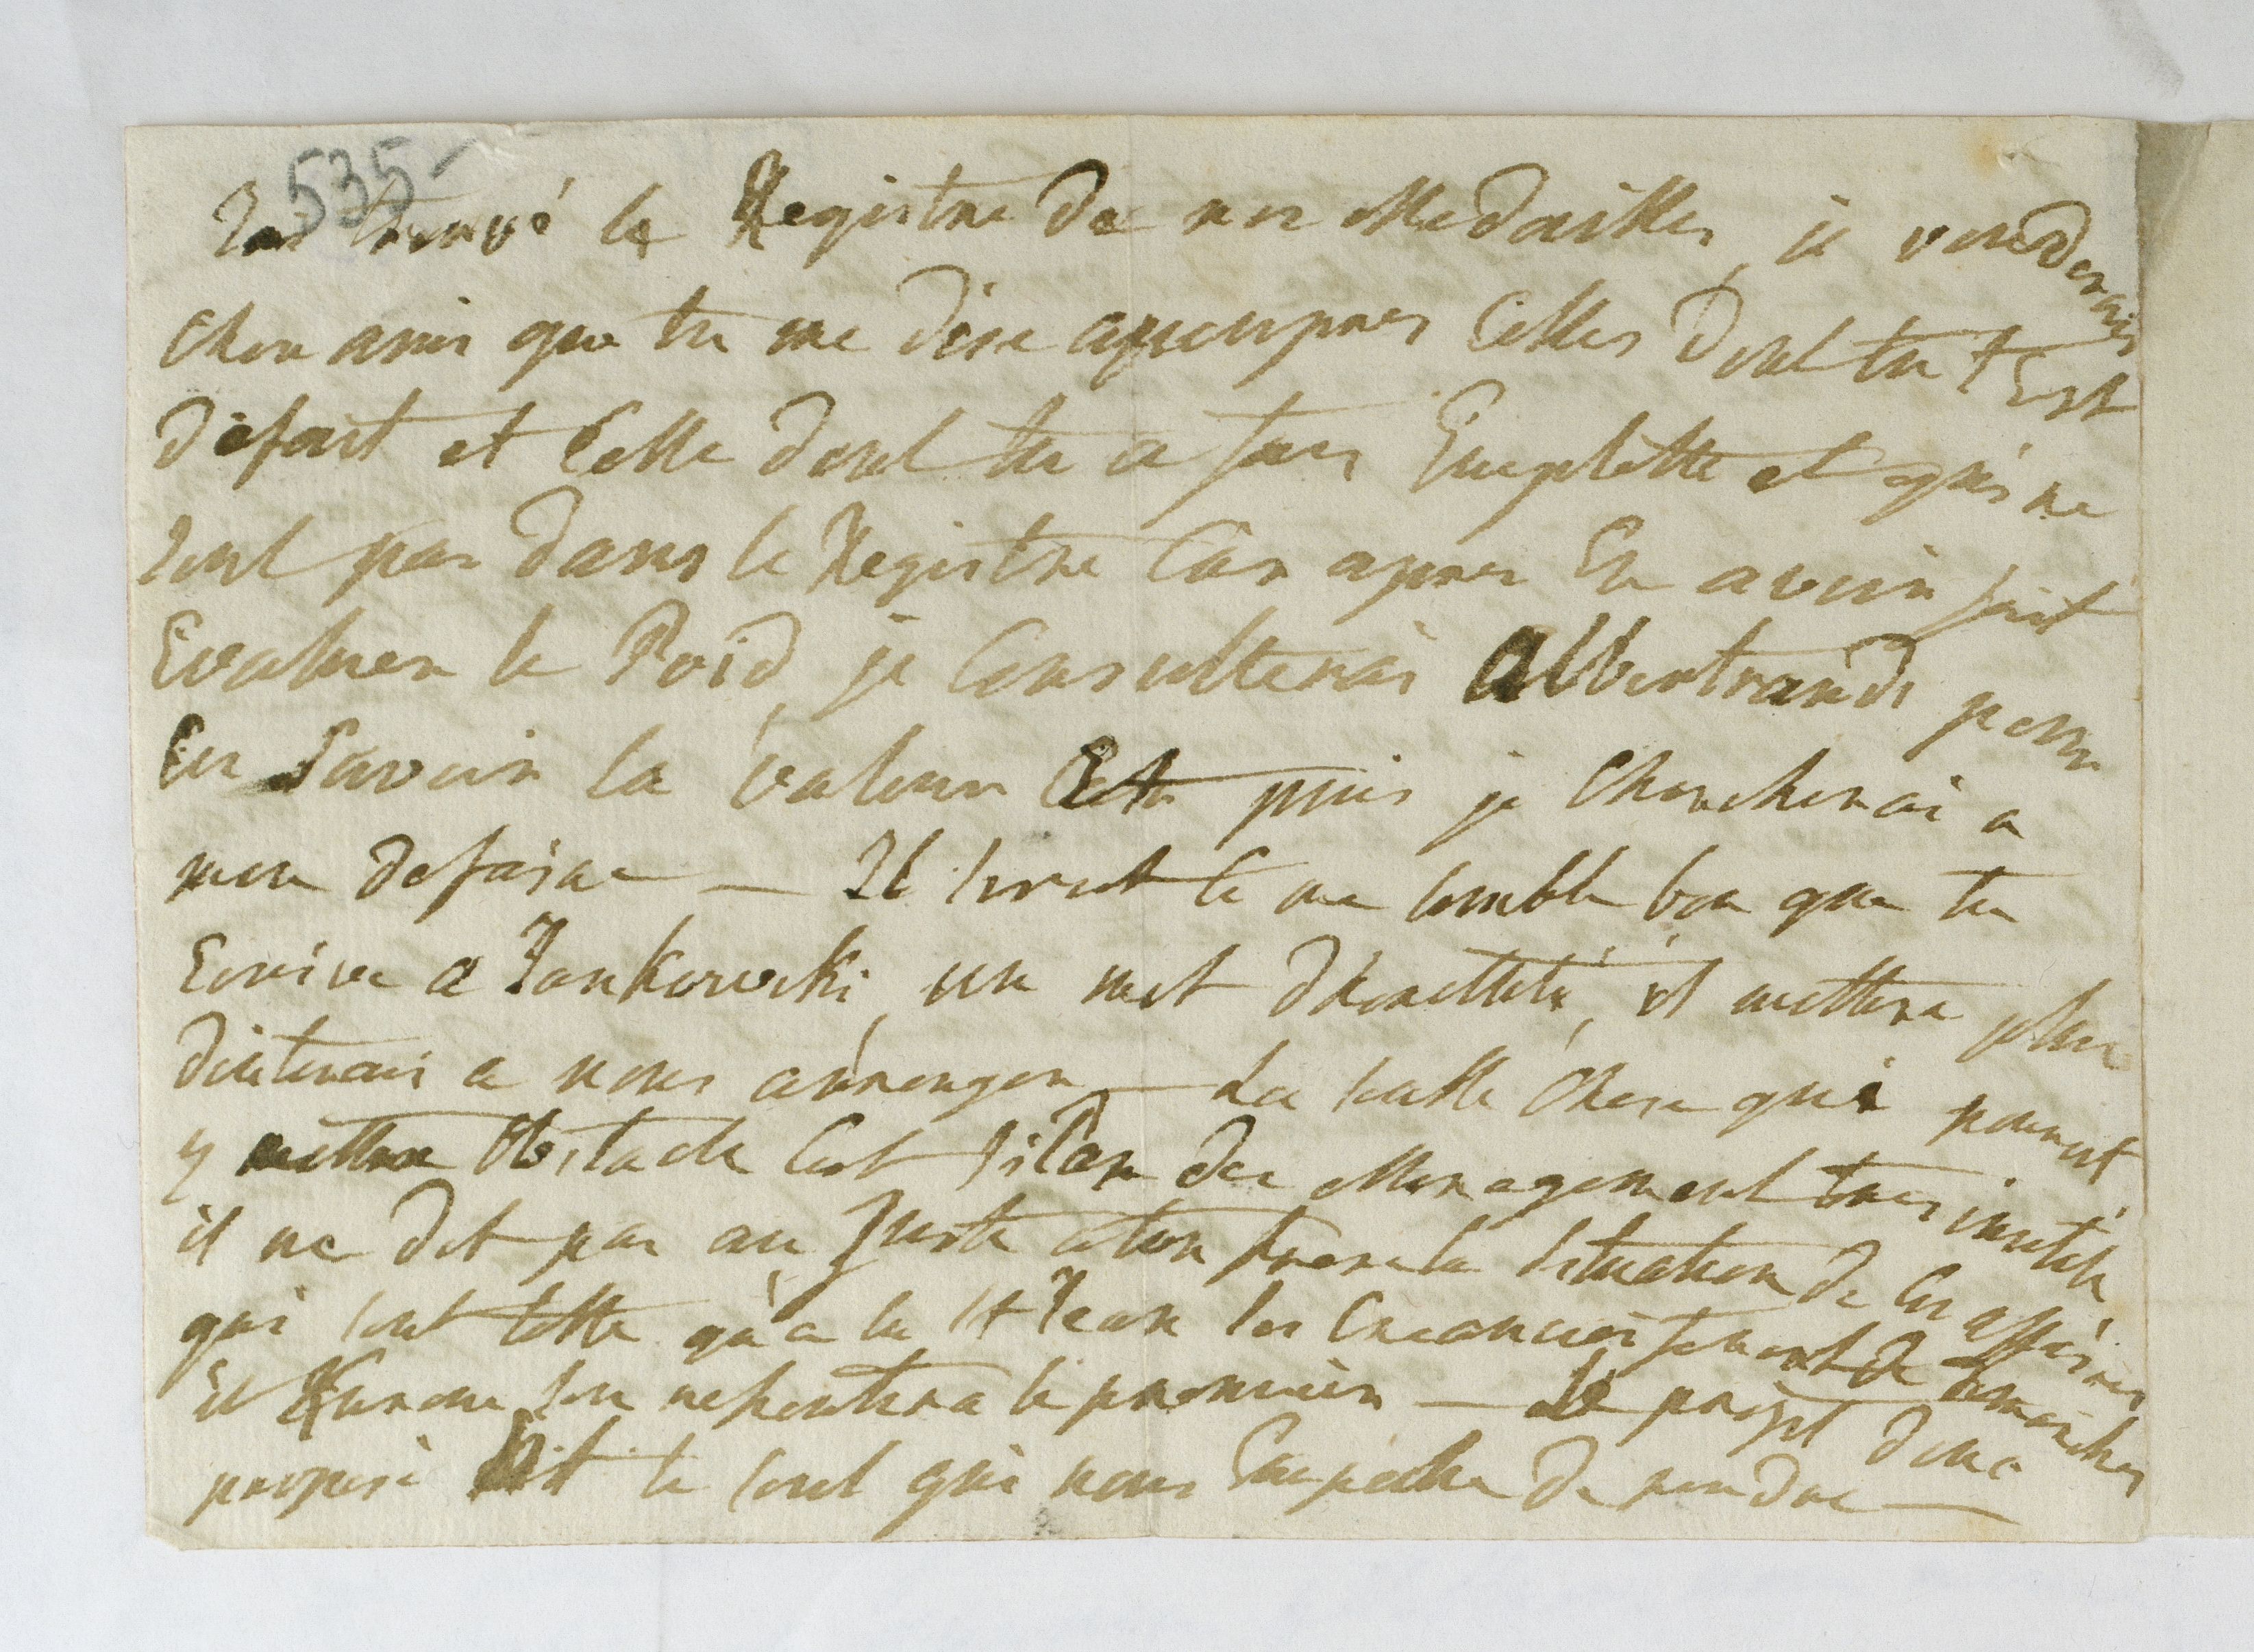 535-
J'ai trouvé le Registre de nos Medailles, je vouderais
cher ami que tu me dise apeuprès celles dont tu t'est
défait et celle dont tu a fais Emplette et qui ne
sont pas dans le Registre car apres En avoir fait
Evaluer le Poid, je consulterai Albertrandi pour
En Savoir la valeur Et puis je chercherai a
men defaire — Il serait ce me semble bon que tu
Ecrive a Jankowski un mot d'honettete, il mettera plus
dinterais a nous arrenger — La seulle chose qui pourrait
y mettre Obstacle c'est si l'on des Menagement tres inutile
il ne dit pas au Juste a ton frere la situation de ces affaires
qui sont telle qu'a la St Jean les creanciers feront de demarches
et Kurone s'en resentira le premier — Le projet donc
proposé est le seul qui nous Empeche de perdre —